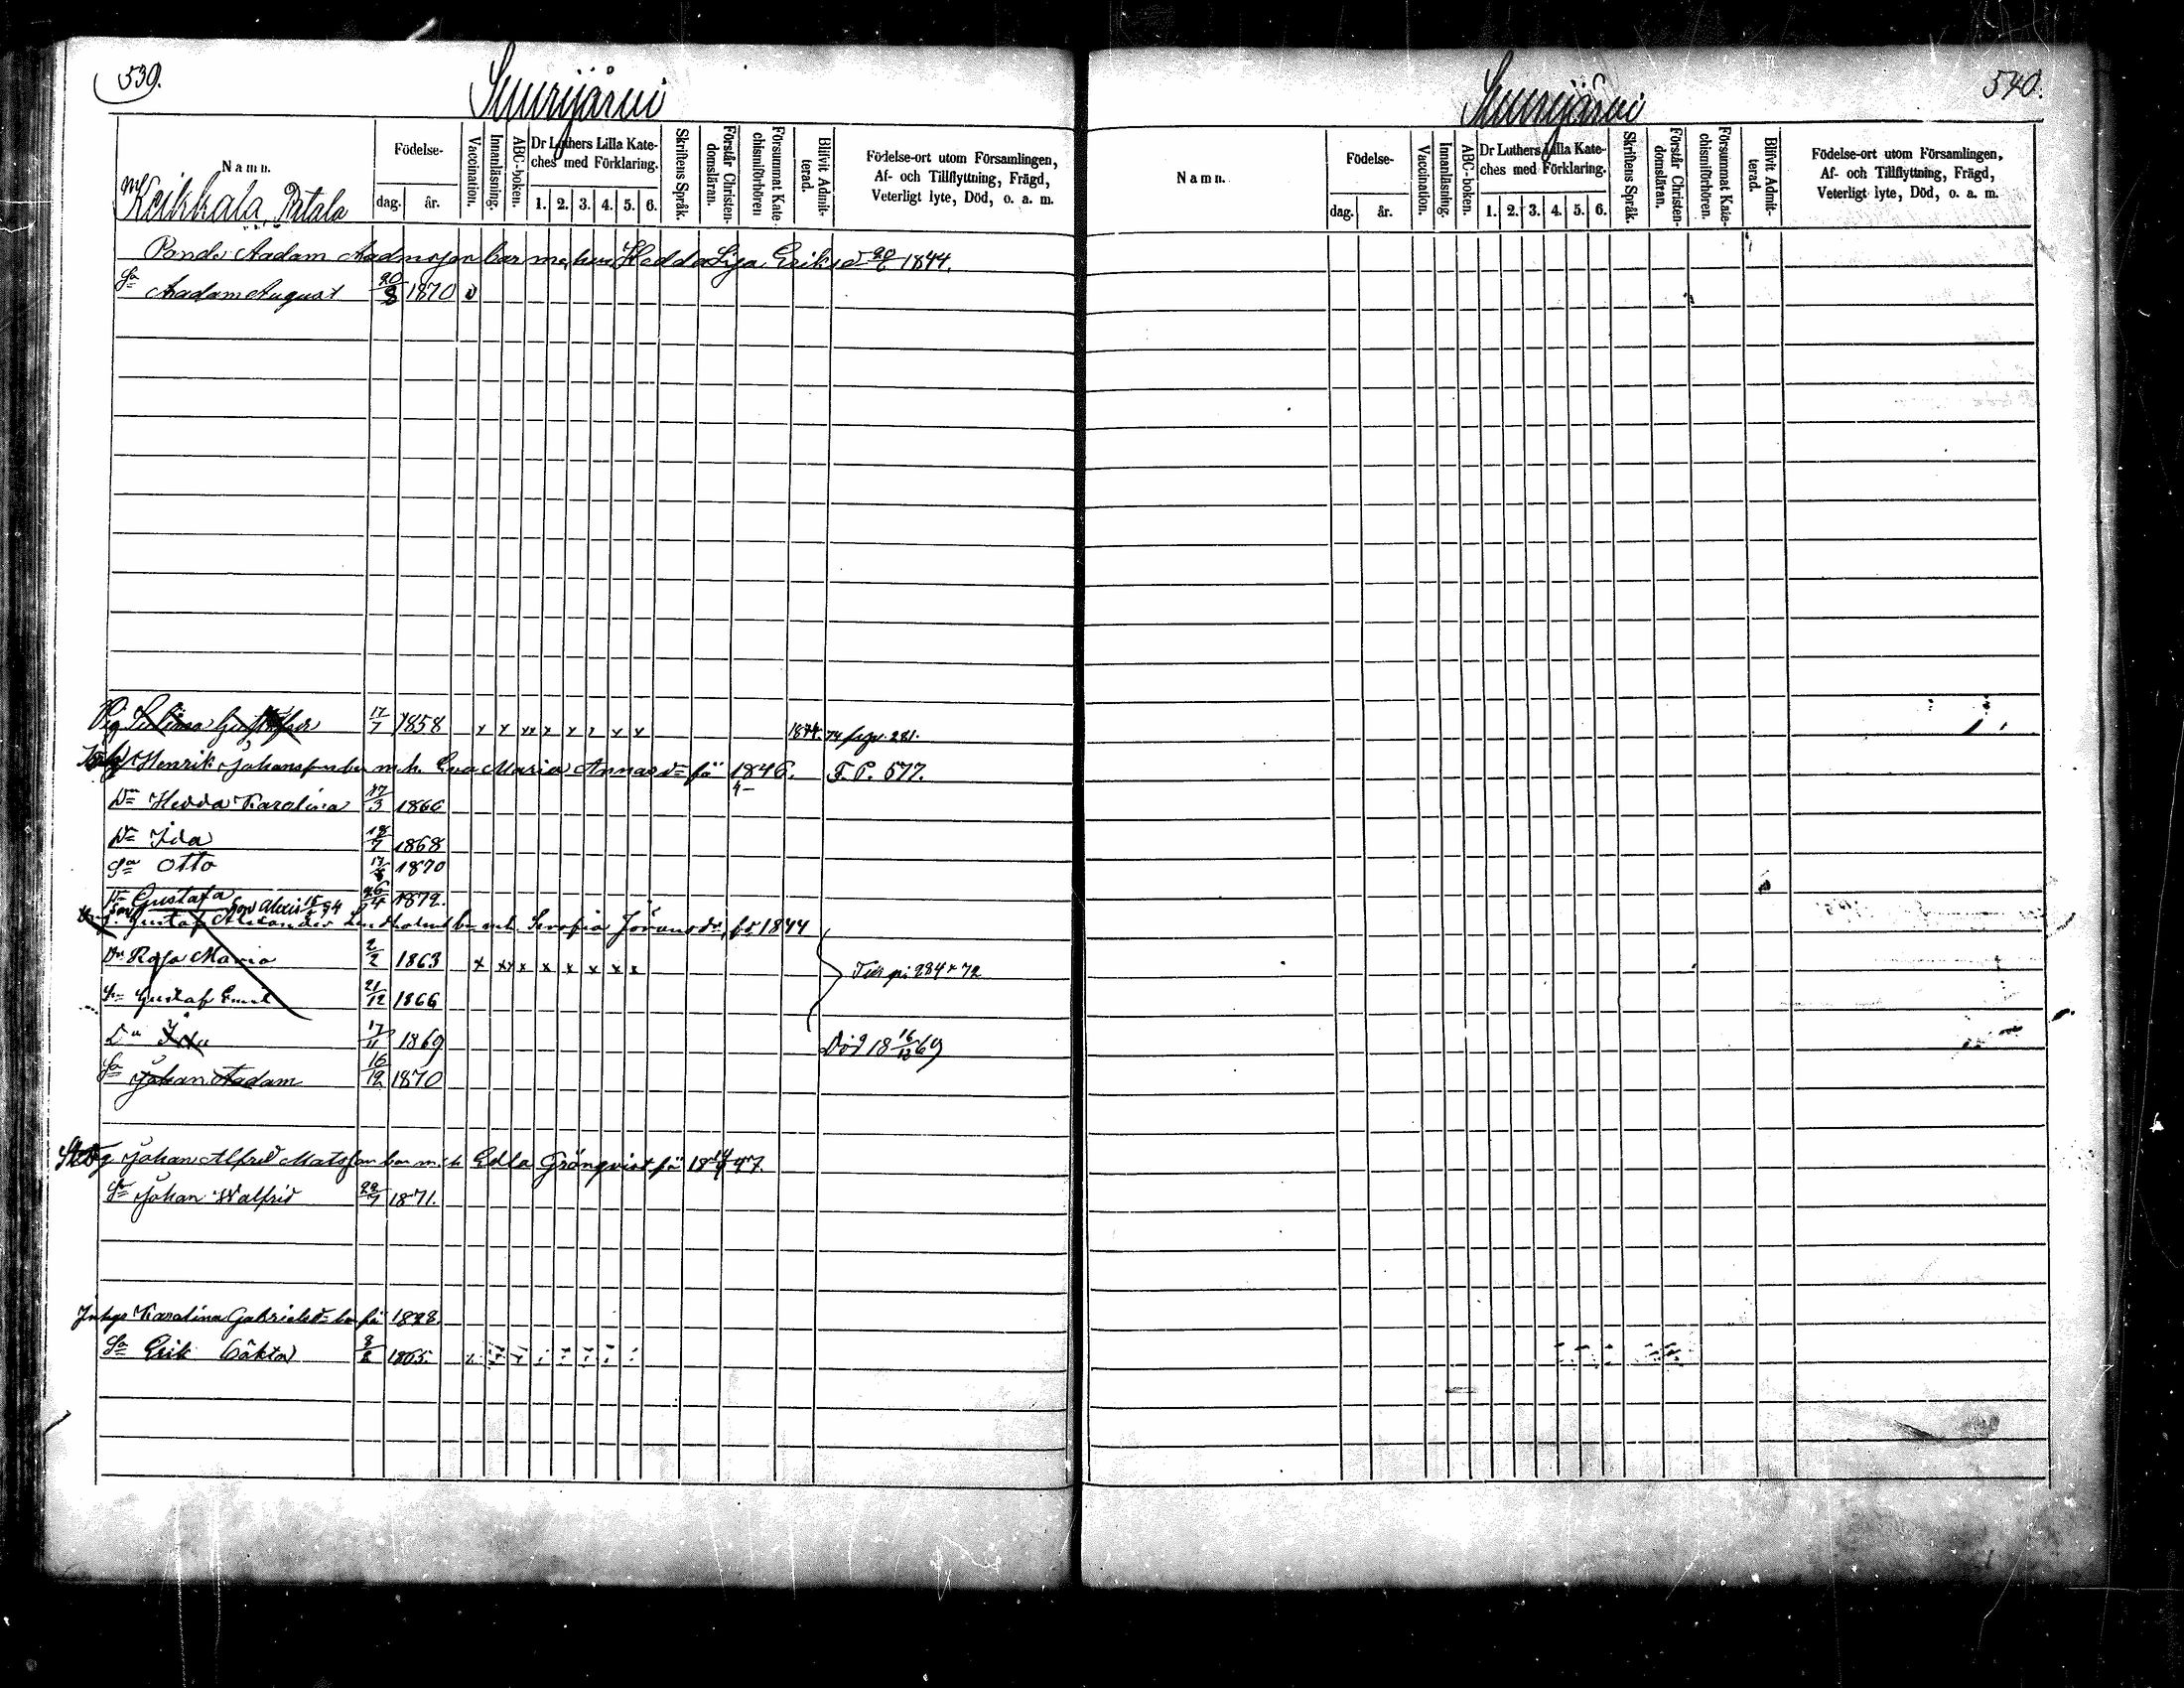 539.
Suurijärvi
Namn.
Födelse-
dag.
år.
Vaccination.
Innanläsning.
ABC-boken.
Dr Luthers Lilla Kate-
ches med Förklaring.
1. 2. 3. 4. 5. 6.
Skriftens Språk.
Förstår Christen-
domsläran.
Försummat Kate
chismiförhören
Blifvit Admit-
terad.
Födelse-ort utom Församlingen,
Af- och Tillflyttning, Frägd,
Veterligt lyte, Död, o. a. m.
Keikkala,
Aadam Hedda Lisa Eriksd 20/6 1844.
Sn Aadam August 20/8 1870 v
Pig 17/7 1858 1874. 281.
Henrik Johansson m.h. Eva Maria Annasdr fö 1846. F.P. 577.
Dr Hedda Karolina 17/3 1866
Dr Ida 1868
Sn Otto 1870
Dr Gustafa 1872.
Gustaf Alexander m.h. Serafia Jöransdr, fö 1844
Dr Rosa Maria 2/2 1863
Sn Gustaf Emil 21/12 1866
284 72
Dr Ida 17/11 1869 Död 18 16/12 69
Sn Johan Aadam 16/12 1870
Johan Alfred Matsson m.h. Edla Grönqvist fö 47.
Sn Johan Walfrid 1871.
Karolina Gabrielsdr fö 1828
Sn Erik 1865.
540.
Suurijärvi
Namn.
Födelse-
dag.
år.
Vaccination.
Innanläsning.
ABC-boken.
Dr Luthers Lilla Kate-
ches med Förklaring.
1. 2. 3. 4. 5. 6.
Skriftens Språk.
Förstår Christen-
domsläran.
Försummat Kate-
chismiförhören.
Blifvit Admit-
terad.
Födelse-ort utom Församlingen,
Af- och Tillflyttning, Frägd,
Veterligt lyte, Död, o. a. m.